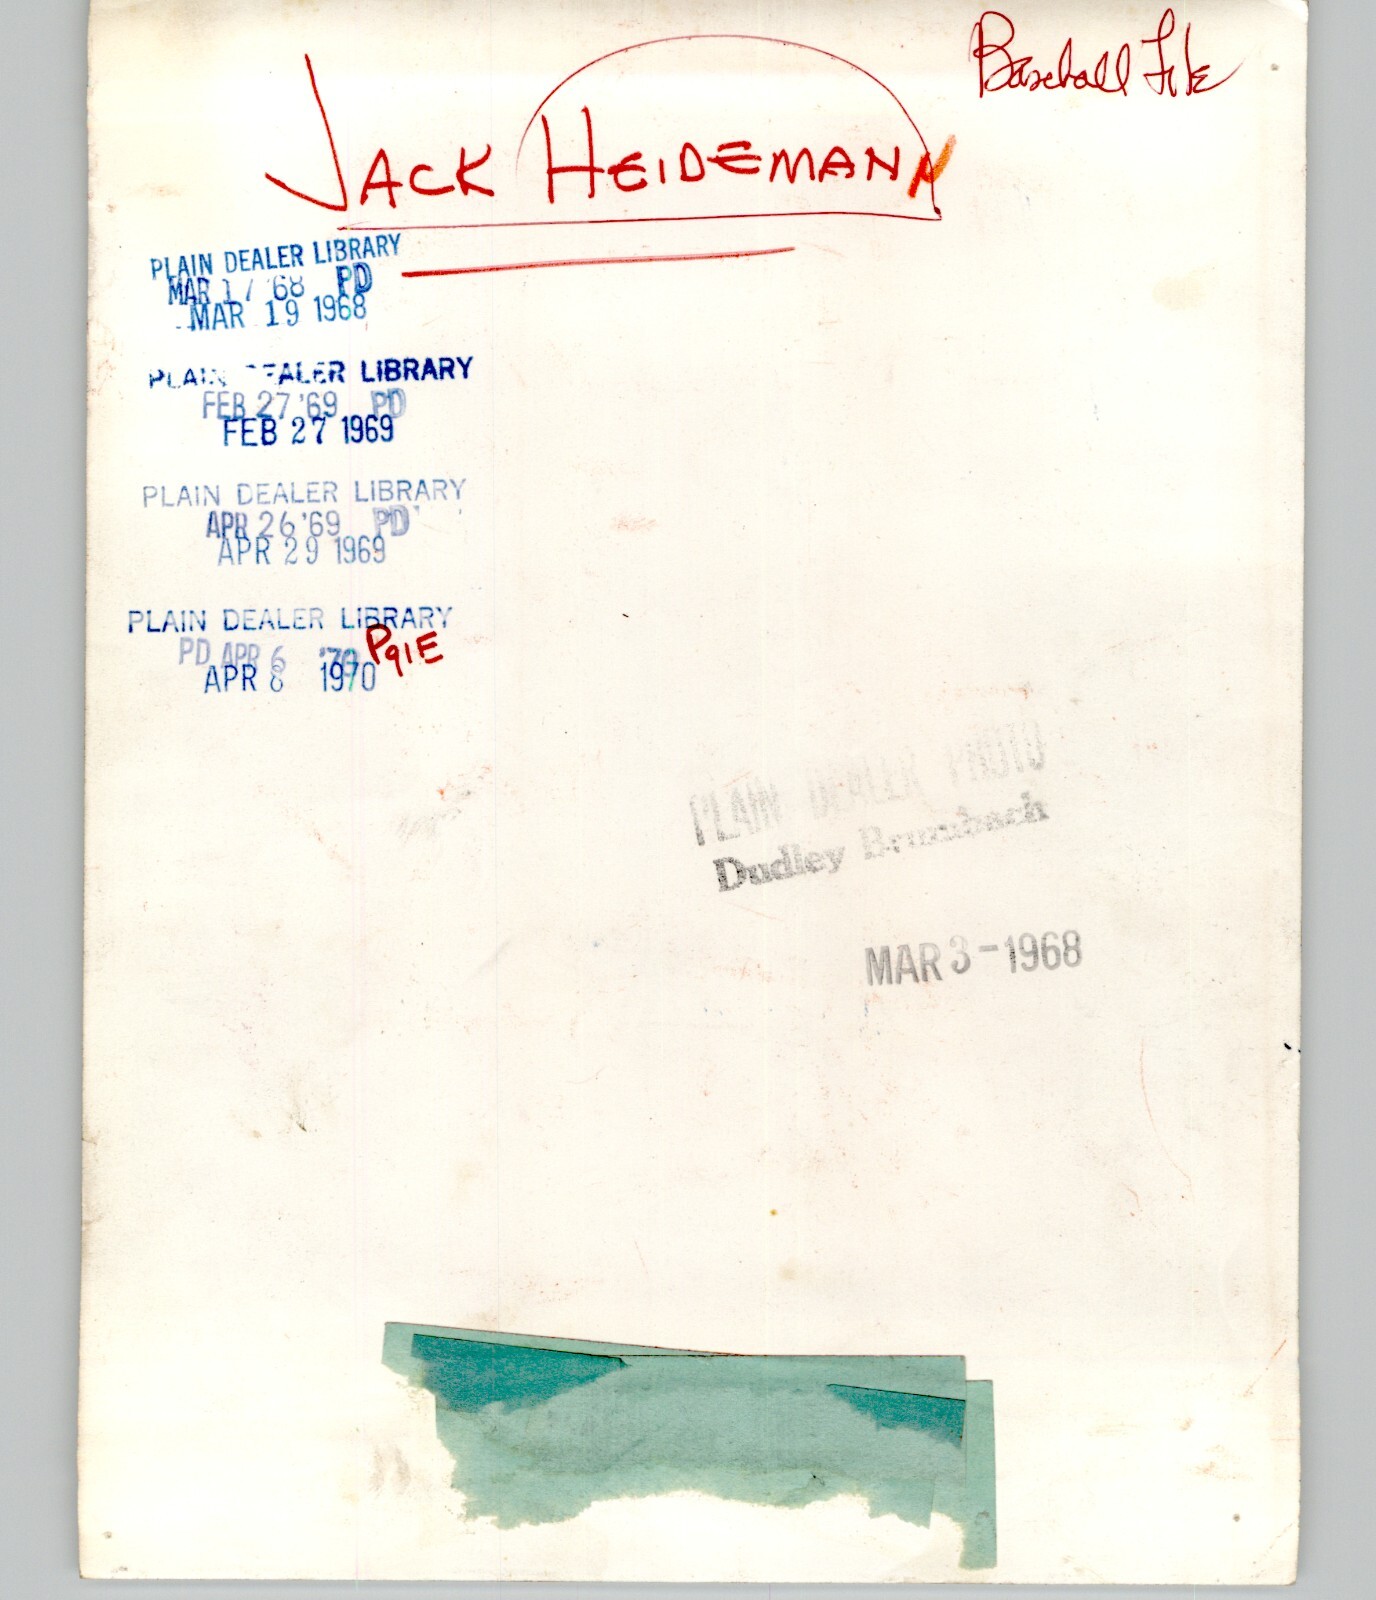 Baseball File
JACK HEIDEMANN
PLAIN DEALER LIBRARY
MAR 17 '68 PD
MAR 19 1968
PLAIN DEALER LIBRARY
FEB 27 '69 PD
FEB 27 1969
PLAIN DEALER LIBRARY
APR 26 '69 PD
APR 29 1969
PLAIN DEALER LIBRARY
PD APR 6 '70 Pg1E
APR 8 1970
PLAIN DEALER PHOTO
Dudley Brumbach
MAR 3-1968